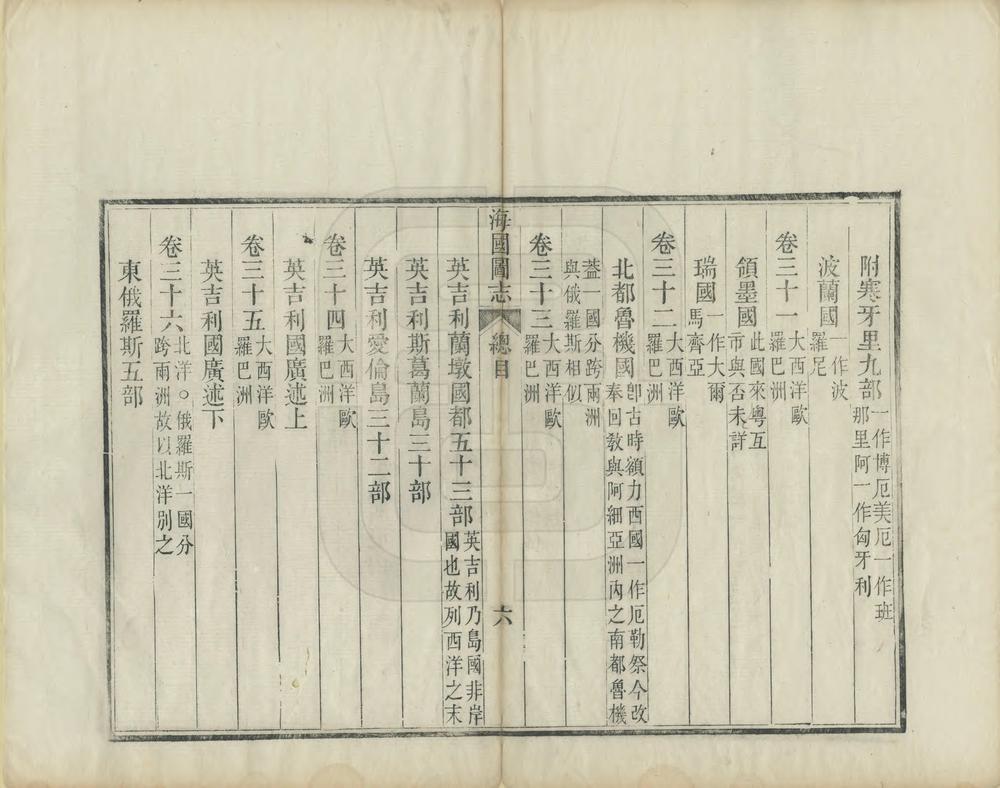 附寒牙里九部一作博厄美厄一作班那里阿一作匈牙利
波蘭國一作波羅足
卷三十一大西洋歐羅巴洲
領墨國此國來粵互市與否未詳
瑞國一作大爾馬齊亞
卷三十二大西洋歐羅巴洲
北都魯機國卽古時額力西國一作厄勒祭今改奉回敎與阿細亞洲內之南都魯機
葢一國分跨兩洲與俄羅斯相似
卷三十三大西洋歐羅巴洲
海國圖志 總目 六
英吉利蘭墩國都五十三部英吉利乃島國非岸國也故列西洋之末
英吉利斯葛蘭島三十部
英吉利愛倫島三十二部
卷三十四大西洋歐羅巴洲
英吉利國廣述上
卷三十五大西洋歐羅巴洲
英吉利國廣述下
卷三十六北洋○俄羅斯一國分跨兩洲故以北洋別之
東俄羅斯五部